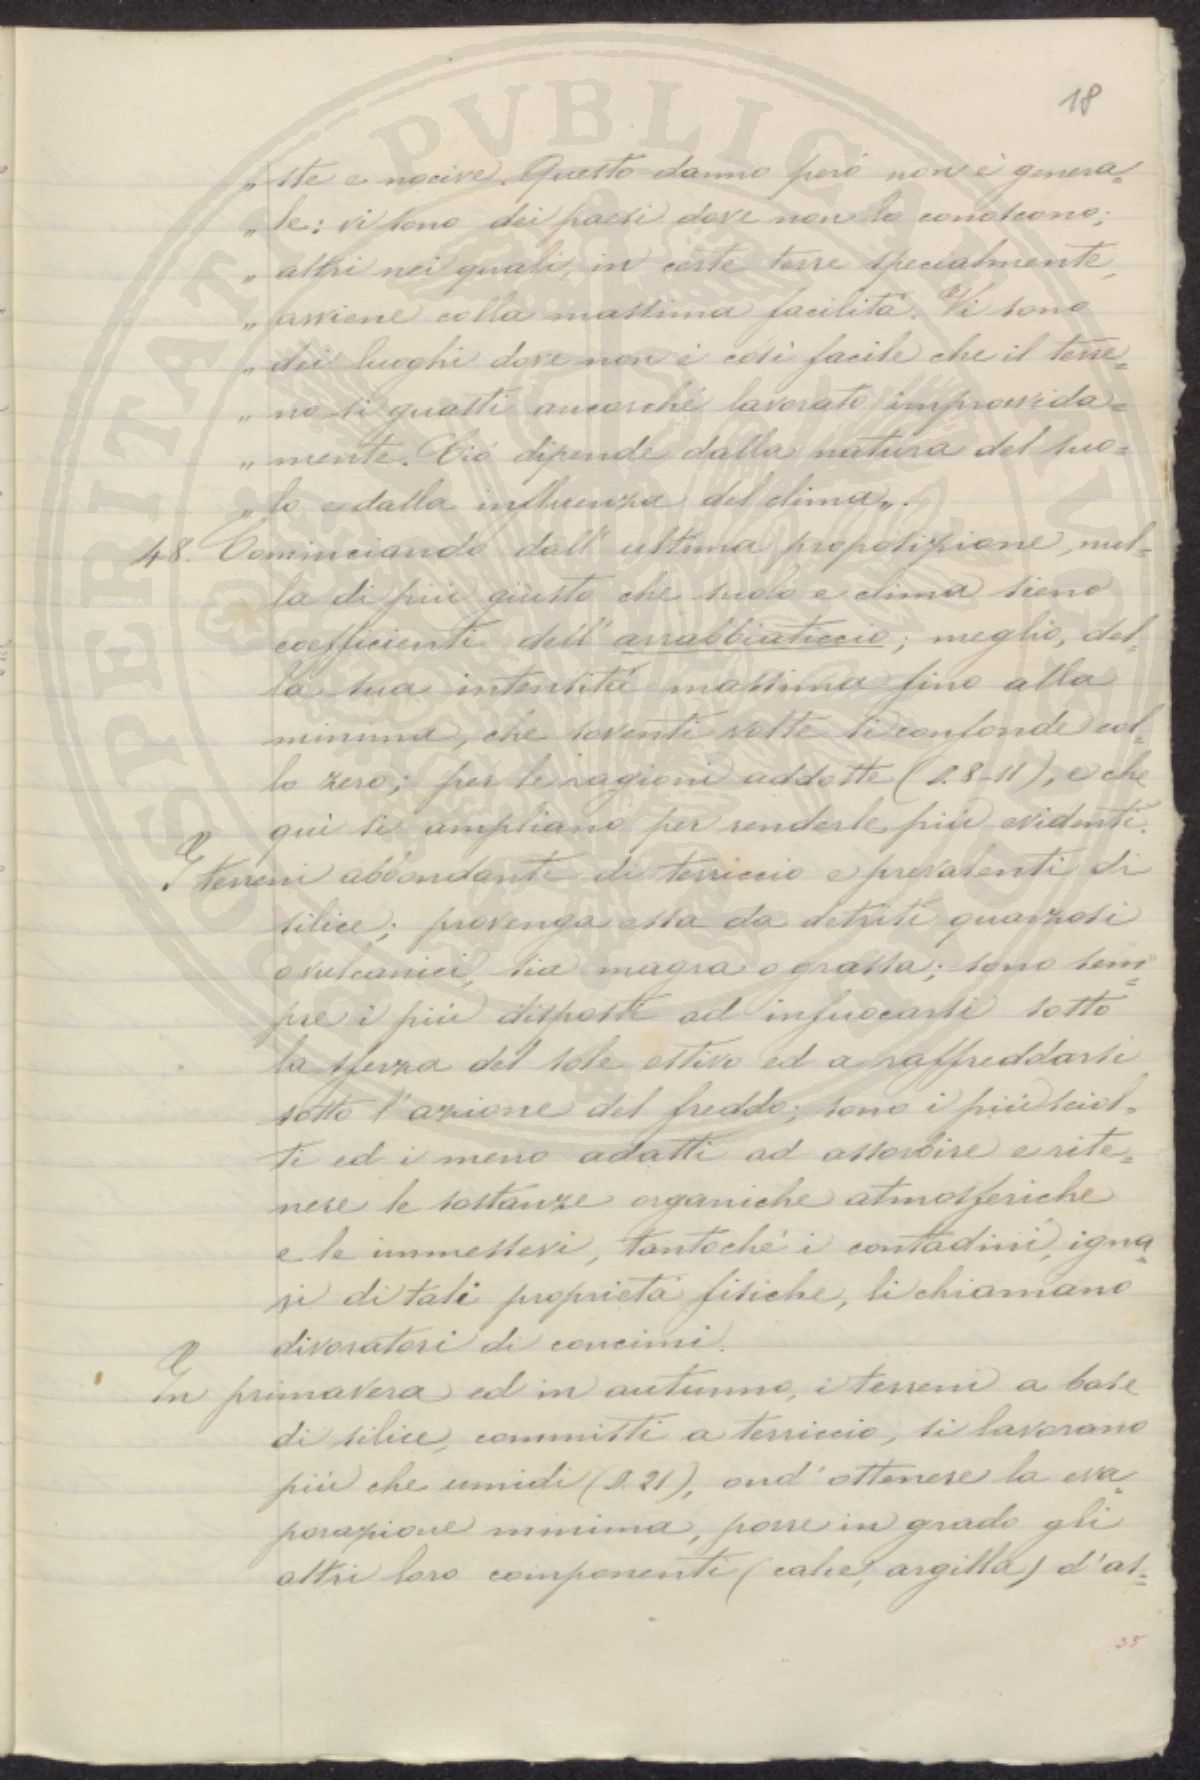 18
„ ste e nocive. Questo danno però non è genera=
„ le: vi sono dei paesi dove non lo conoscono;
„ altri nei quali, in certe terre specialmente,
„ avviene colla massima facilità. Vi sono
„ dei luoghi dove non è così facile che il terre=
„ no si guasti ancorchè lavorato improvvida=
„ mente. Ciò dipende dalla natura del suo=
„ lo e dalla influenza del clima„.
48. Cominciando dall'ultima proposizione, nul=
la di più giusto che suolo e clima sieno
coefficienti dell'arrabbiaticcio; meglio, del=
la sua intensità massima fino alla
minima, che soventi volte si confonde col=
lo zero; per le ragioni addotte (§. 8-11), e che
quì si ampliano per renderle più evidenti.
I terreni abbondanti di terriccio e prevalenti di
silice; provenga essa da detriti quarzosi
o vulcanici, sia magra o grassa; sono sem=
pre i più disposti ad infuocarsi sotto
la sferza del sole estivo ed a raffreddarsi
sotto l'azione del freddo; sono i più sciol=
ti ed i meno adatti ad assorbire e rite=
nere le sostanze organiche atmosferiche
e le immessevi, tantochè i contadini, igna=
ri di tali proprietà fisiche, li chiamano
divoratori di concimi.
In primavera ed in autunno, i terreni a base
di silice, commisti a terriccio, si lavorano
più che umidi (§. 21), ond'ottenere la eva=
porazione minima, porre in grado gli
altri loro componenti (calce, argilla) d'as=
35
SPERITATI PVBLICAE